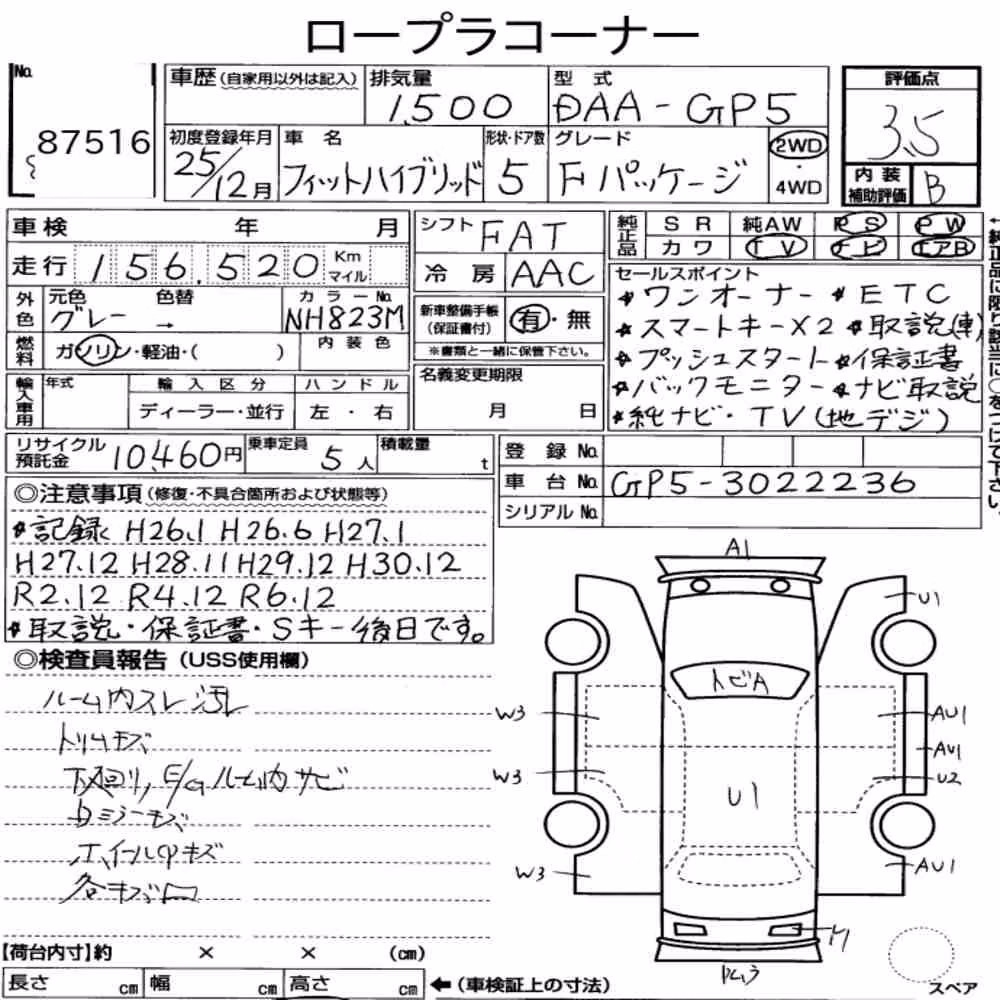 ロープラコーナー
No. 87516
車歴(自家用以外は記入)
排気量 1,500
型式 DAA-GP5
評価点 3.5
初度登録年月 25/12月
車名 フィットハイブリッド
形状・ドア数 5
グレード Fパッケージ
2WD・4WD
内装補助評価 B
車検 年 月
シフト FAT
純正品 SR 純AW PS PW
カワ TV ナビ エアB
走行 156,520 Km マイル
冷房 AAC
外色 元色 グレー → 色替 カラーNo. NH823M
内装色
新車整備手帳(保証書付) 有・無
※書類と一緒に保管下さい。
燃料 ガソリン・軽油・( )
セールスポイント
★ワンオーナー ★ETC
★スマートキーX2 ★取説(車)
★プッシュスタート ★保証書
★バックモニター ★ナビ取説
★純ナビ・TV(地デジ)
輸入車用 年式 輸入区分 ハンドル
ディーラー・並行 左・右
名義変更期限 月 日
リサイクル預託金 10,460円
乗車定員 5人
積載量 t
登録No.
車台No. GP5-3022236
シリアルNo.
◎注意事項(修復・不具合箇所および状態等)
★記録 H26.1 H26.6 H27.1
H27.12 H28.11 H29.12 H30.12
R2.12 R4.12 R6.12
★取説・保証書・Sキー後日です。
◎検査員報告(USS使用欄)
ルーム内スレ汚レ
トリムキズ
下廻り,E/Gルーム内サビ
Dミラーキズ
ホイールキズ
各キズ
【荷台内寸】約 × × (cm)
長さ cm 幅 cm 高さ cm ←(車検証上の寸法)
A1
U1
トビA
W3
AU1
AU1
W3
U2
U1
W3
AU1
スペア